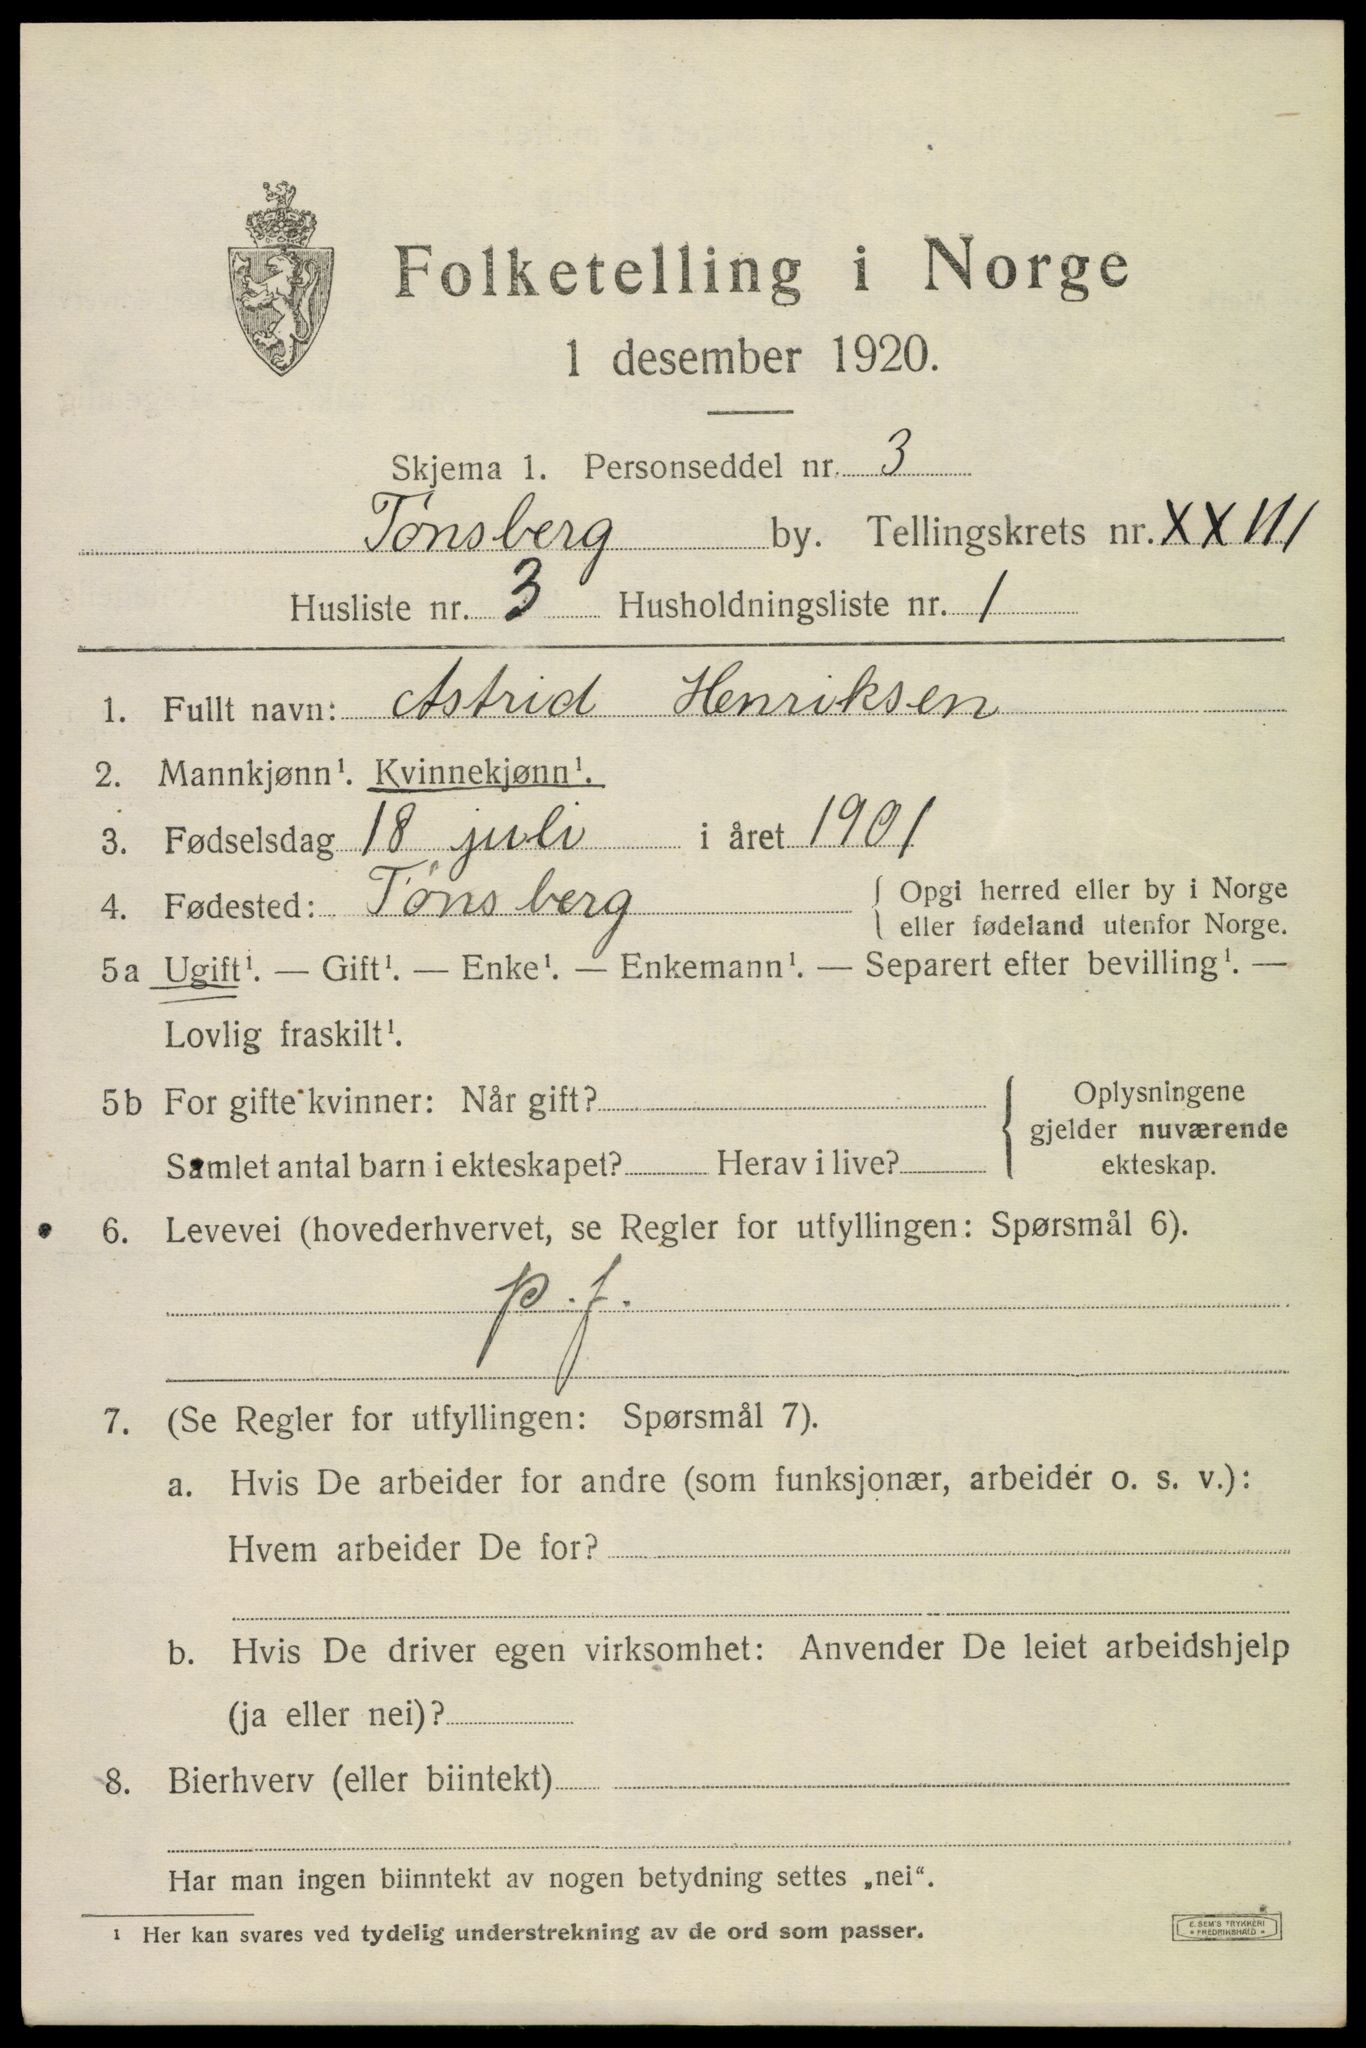 Folketelling i Norge
1 desember 1920.
Skjema 1. Personseddel nr. 3
Tønsberg by. Tellingskrets nr. XXVII
Husliste nr. 3 Husholdningsliste nr. 1
1. Fullt navn: Astrid Henriksen
2. Mannkjønn¹. Kvinnekjønn¹.
3. Fødselsdag 18 juli i året 1901
4. Fødested: Tønsberg { Opgi herred eller by i Norge
eller fødeland utenfor Norge.
5a Ugift¹. — Gift¹. — Enke¹. — Enkemann¹. — Separert efter bevilling¹. —
Lovlig fraskilt¹.
5b For gifte kvinner: Når gift? { Oplysningene
gjelder nuværende
Samlet antal barn i ekteskapet? Herav i live? ekteskap.
6. Levevei (hovederhvervet, se Regler for utfyllingen: Spørsmål 6).
p. f.
7. (Se Regler for utfyllingen: Spørsmål 7).
a. Hvis De arbeider for andre (som funksjonær, arbeider o. s. v.):
Hvem arbeider De for?
b. Hvis De driver egen virksomhet: Anvender De leiet arbeidshjelp
(ja eller nei)?
8. Bierhverv (eller biintekt)
Har man ingen biinntekt av nogen betydning settes „nei“.
¹ Her kan svares ved tydelig understrekning av de ord som passer.
E. SEM'S TRYKKERI
• FREDRIKSHALD •